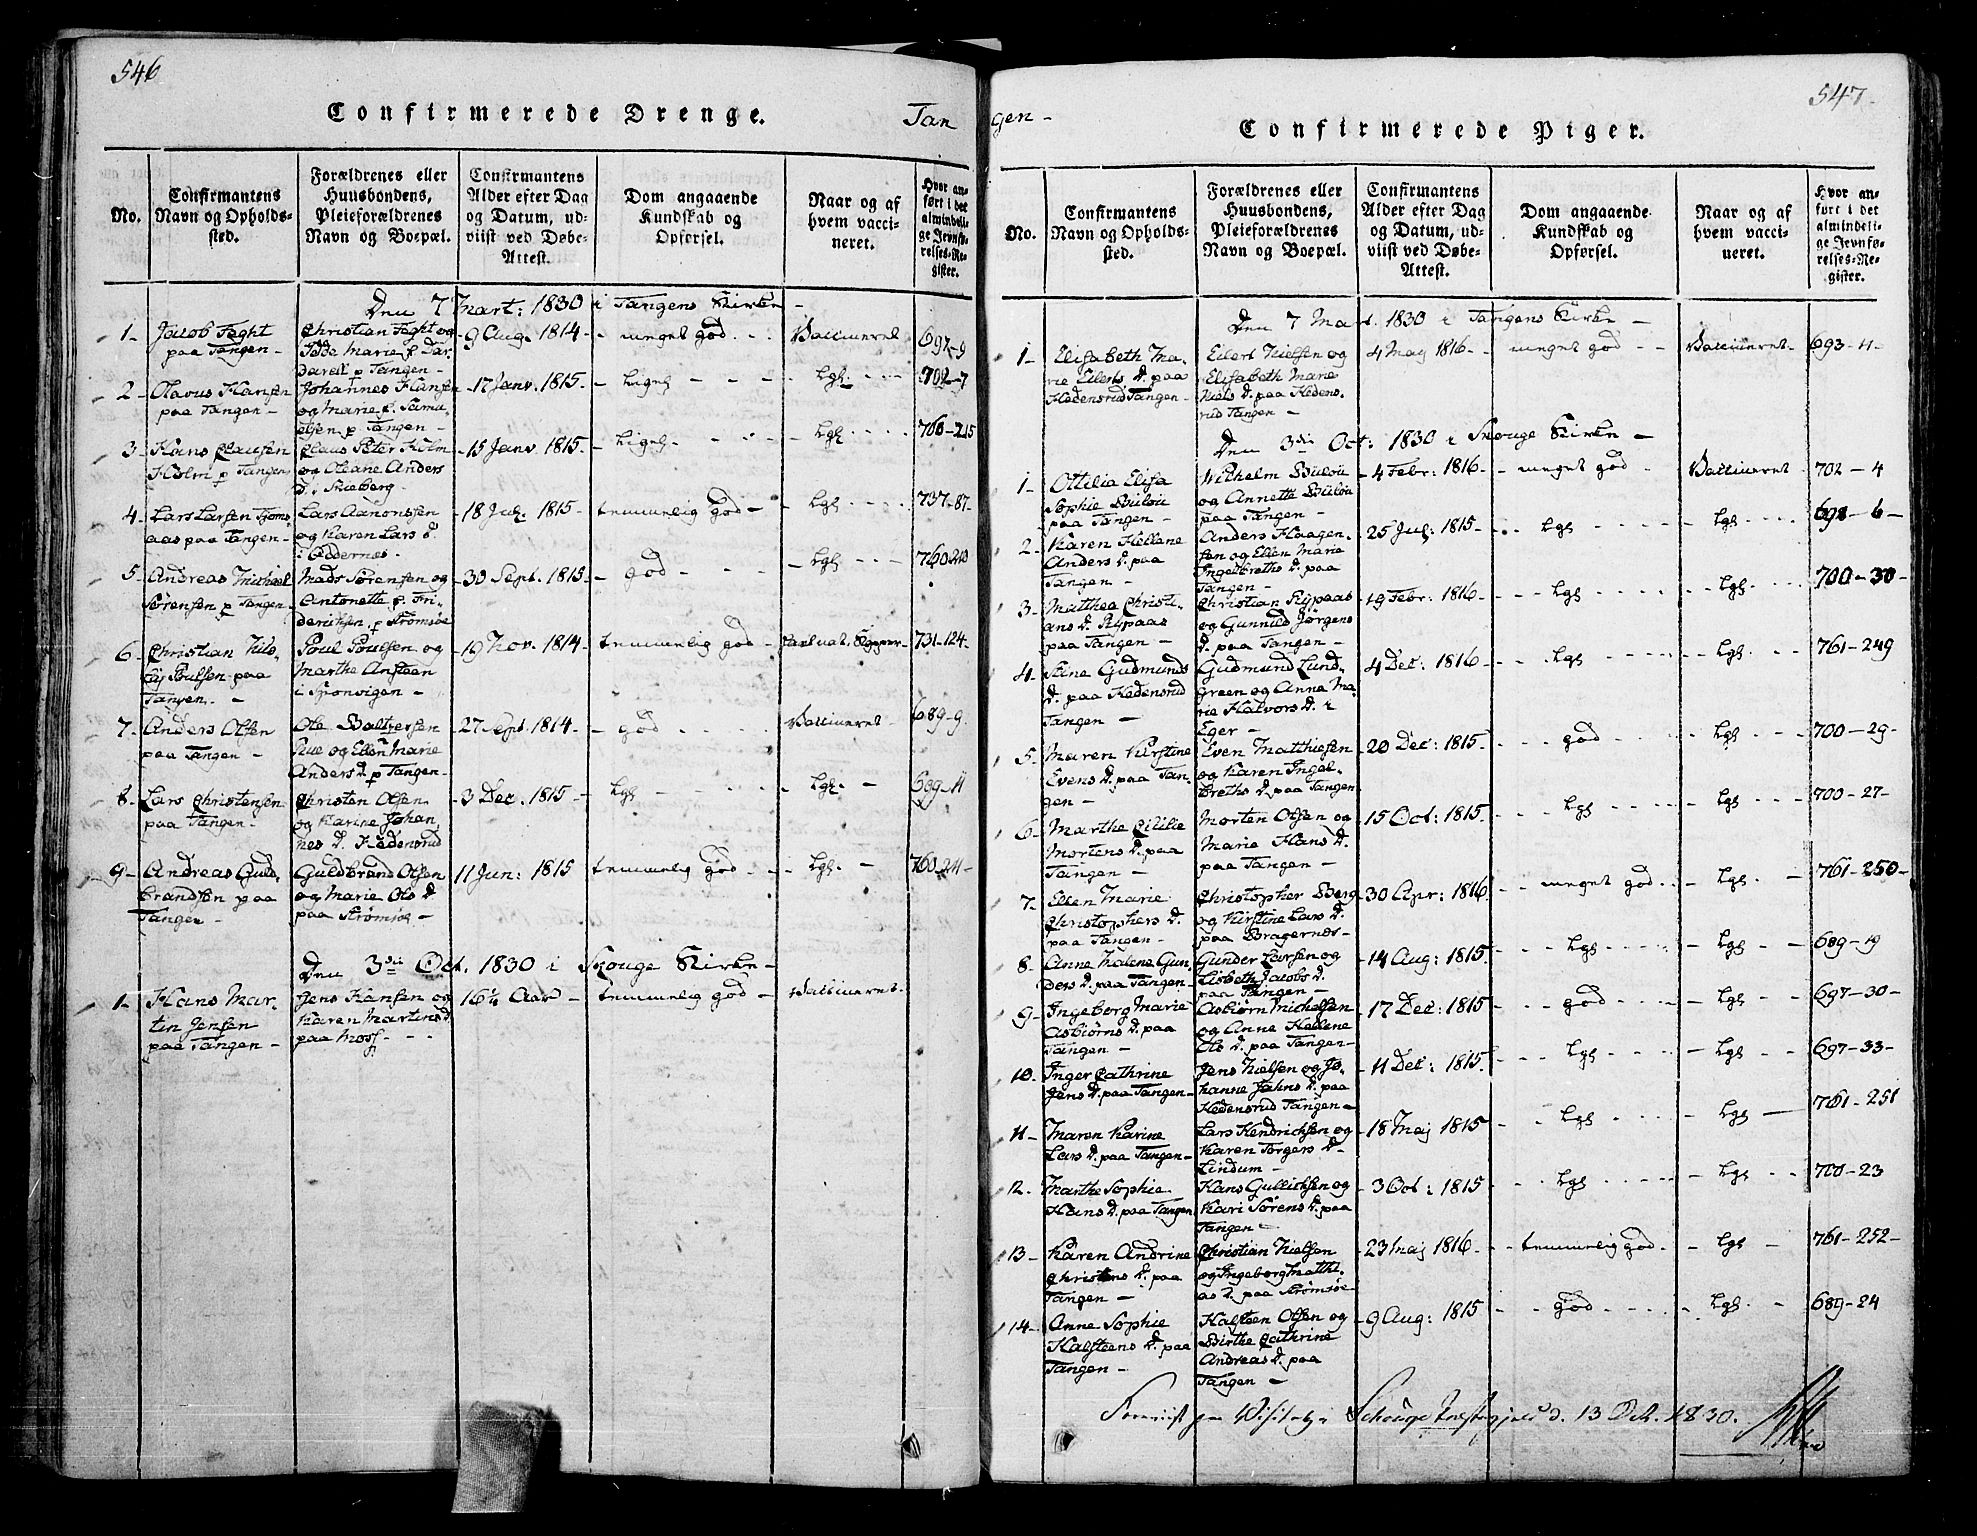 546
Confirmerede Drenge.
Tan
No.
Confirmantens Navn og Opholdssted.
Forældrenes eller Huusbondens, Pleieforældrenes Navn og Boepæl.
Confirmantens Alder efter Dag og Datum, udviist ved Døbe-Attest.
Dom angaaende Kundskab og Opførsel.
Naar og af hvem vaccineret.
Hvor anført i det almindelige Jevnførelses-Register.
Den 7 Mart: 1830 i Tangens Kirke -
1- Jacob Foght
paa Tangen -
Christian Foght og
p Tangen -
- 9 Aug. 1814 - - meget god - - Vaccineret 697-9
2- Olavus Hansen
paa Tangen -
Johannes Hansen
og Marie S. Samu-
elsen p Tangen -
- 17 Janv. 1815 - - ligel - - - - lgl. - - - 702-7
3- Hans Clausen
Holm p Tangen
Claus Peter Holm
og Oleane Anders
D. i Skieberg -
- 15 Janv 1815 - - ligel - - - - lgl. - - - 760-215
4- Lars Larsen
aas paa Tangen -
Lars Aaronsen
og Karen Lars D.
i
- 18 Jul. 1815 - temmelig god - - lgl - - - 737-87-
5- Andreas Michael
Sørensen p Tangen
Mads Sørensen og
Antonette f. Fri-
derichsen p Strømsøe
- 30 Sept. 1815 - - god - - - - lgl - - -
6- Christian
Poulsen paa
Tangen -
Poul Poulsen og
Marthe Ansteen
i
- 19 Nov. 1814 temmelig god - 731-124-
7- Anders Olsen
paa Tangen -
Ole Baltzersen
og Ellen Marie
Anders D. p Tangen -
- 27 Sept. 1814 - - god - - - - Vaccineret - 689-9.
8- Lars Christensen
paa Tangen -
Christen Olsen
og Karine Johan
nes D. Hedensrud
- 3 Dec. 1815 - - lgl - - - - lgl. - 689-11
9- Andreas Guld-
brandsen paa
Tangen -
Guldbrand Olsen
og Marie Ols D.
paa Strømsøe -
11 Jun: 1815 temmelig god - - lgl. - 760-211-
Den 3die Oct. 1830 i Skouge Kirke -
1- Hans Mar-
tin Jensen
paa Tangen -
Jens Hansen og
Karen Martins D
paa Moss - - -
16¼ Aar - temmelig god - Vaccineret -
547-
gen -
Confirmerede Piger.
No.
Confirmantens Navn og Opholdssted.
Forældrenes eller Huusbondens, Pleieforældrenes Navn og Boepæl.
Confirmantens Alder efter Dag og Datum, udviist ved Døbe-Attest.
Dom angaaende Kundskab og Opførsel.
Naar og af hvem vaccineret.
Hvor anført i det almindelige Jevnførelses-Register.
Den 7 Mart. 1830 i Tangens Kirke -
1- Elisabeth Ma-
rie Eilerts D. paa
Hedensrud Tangen -
Eilert Nielsen og
Elisabeth Marie
Niels D. paa Hedens-
rud Tangen -
4 Maj 1816 - - meget god - - Vaccineret - 693-11-
Den 3die Oct: 1830 i Skouge Kirke -
1- Ottilia Elisa
Sophie Bülow
paa Tangen -
Wilhelm Bülow
og Annette Bülow
paa Tangen -
- 4 Febr: 1816 - - meget god - Vaccineret 702-4
2- Karen Hellane
Anders D. paa
Tangen -
Anders Haagen-
sen og Ellen Marie
Ingelbreths D. paa
Tangen -
25 Jul: 1815 - - lgl - - - - lgl - - - 698-6-
3- Matthea Christi-
ans D. Rypaas
paa Tangen -
Christian Rypaas
og Gunnild Jørgens
D. paa Tangen -
- 19 Febr: 1816 - - - lgl - - - - lgl - - - 700-30-
4- Stine Gudmunds
D. paa Hedensrud
Tangen -
Gudmund Lund-
green og Anna Ma-
rie Halvors D. i
Eger -
4 Dec: 1816 - - - lgl - - - - lgl. - - 761-249
5- Maren Kirstine
Evens D. paa Tan-
gen -
Even Matthiesen
og Karen Ingel-
breths D. paa Tangen
- 20 Dec: 1815 - - - god - - - - lgl - - - 700-29-
6- Marthe Cicilie
Mortens D. paa
Tangen -
Morten Olsen og
Marie Hans D.
paa Tangen -
- 15 Oct: 1815 - - lgl - - - - lgl - - - 700-27-
7- Ellen Marie
Christophers D.
paa Tangen -
Christopher Berg
og Kirstine Lars D.
paa Bragernes -
- 30 Apr: 1816 - - meget god - - lgl - - 761-250-
8- Anne Malene Gun-
ders D. paa Tangen -
Gunder Larsen og
Lisbeth Jacobs D.
paa Tangen -
- 14 Aug: 1815 - - lgl - - - - lgl - - 689-19
9- Ingeborg Marie
Asbiørns D. paa
Tangen -
Asbiørn Michelsen
og Anne Hellene
Ols D. paa Tangen -
- 17 Dec: 1815 - - god - - - - lgl - - 697-30-
10- Inger Cathrine
Jens D. paa Tangen -
Jens Nielsen og Jo-
hanne Jahns D. paa
Hedensrud Tangen -
- 11 Dec: 1815 - - - lgl - - - - lgl - - 697-33-
11- Maren Karine
Lars D. paa Tangen -
Lars Hendrichsen og
Karen Torgers D.
Lindum -
- 18 Maj 1815 - - lgl - - - - lgl - 761-251
12- Marthe Sophie
Hans D. paa Tangen
Hans Gullichsen og
Kari Sørens D. paa
Tangen -
- 3 Oct: 1815 - - - lgl - - - - lgl - - 700-23
13- Karen Andrine
Christens D. paa
Tangen -
Christian Nielsen
og Ingeborg Matthi-
as D. paa Strømsøe -
- 23 Maj 1816 - - temmelig god - - lgl - 761-252-
14- Anne Sophie
Halsteens D. paa
Tangen -
Halsteen Olsen og
Birthe Cathrine
Andreas D. paa
Tangen -
- 9 Aug: 1815 - - god - - - - lgl - - 689-24
Foreviist paa Visitatz i Schouge Præstegjeld d. 13 Oct. 1830.